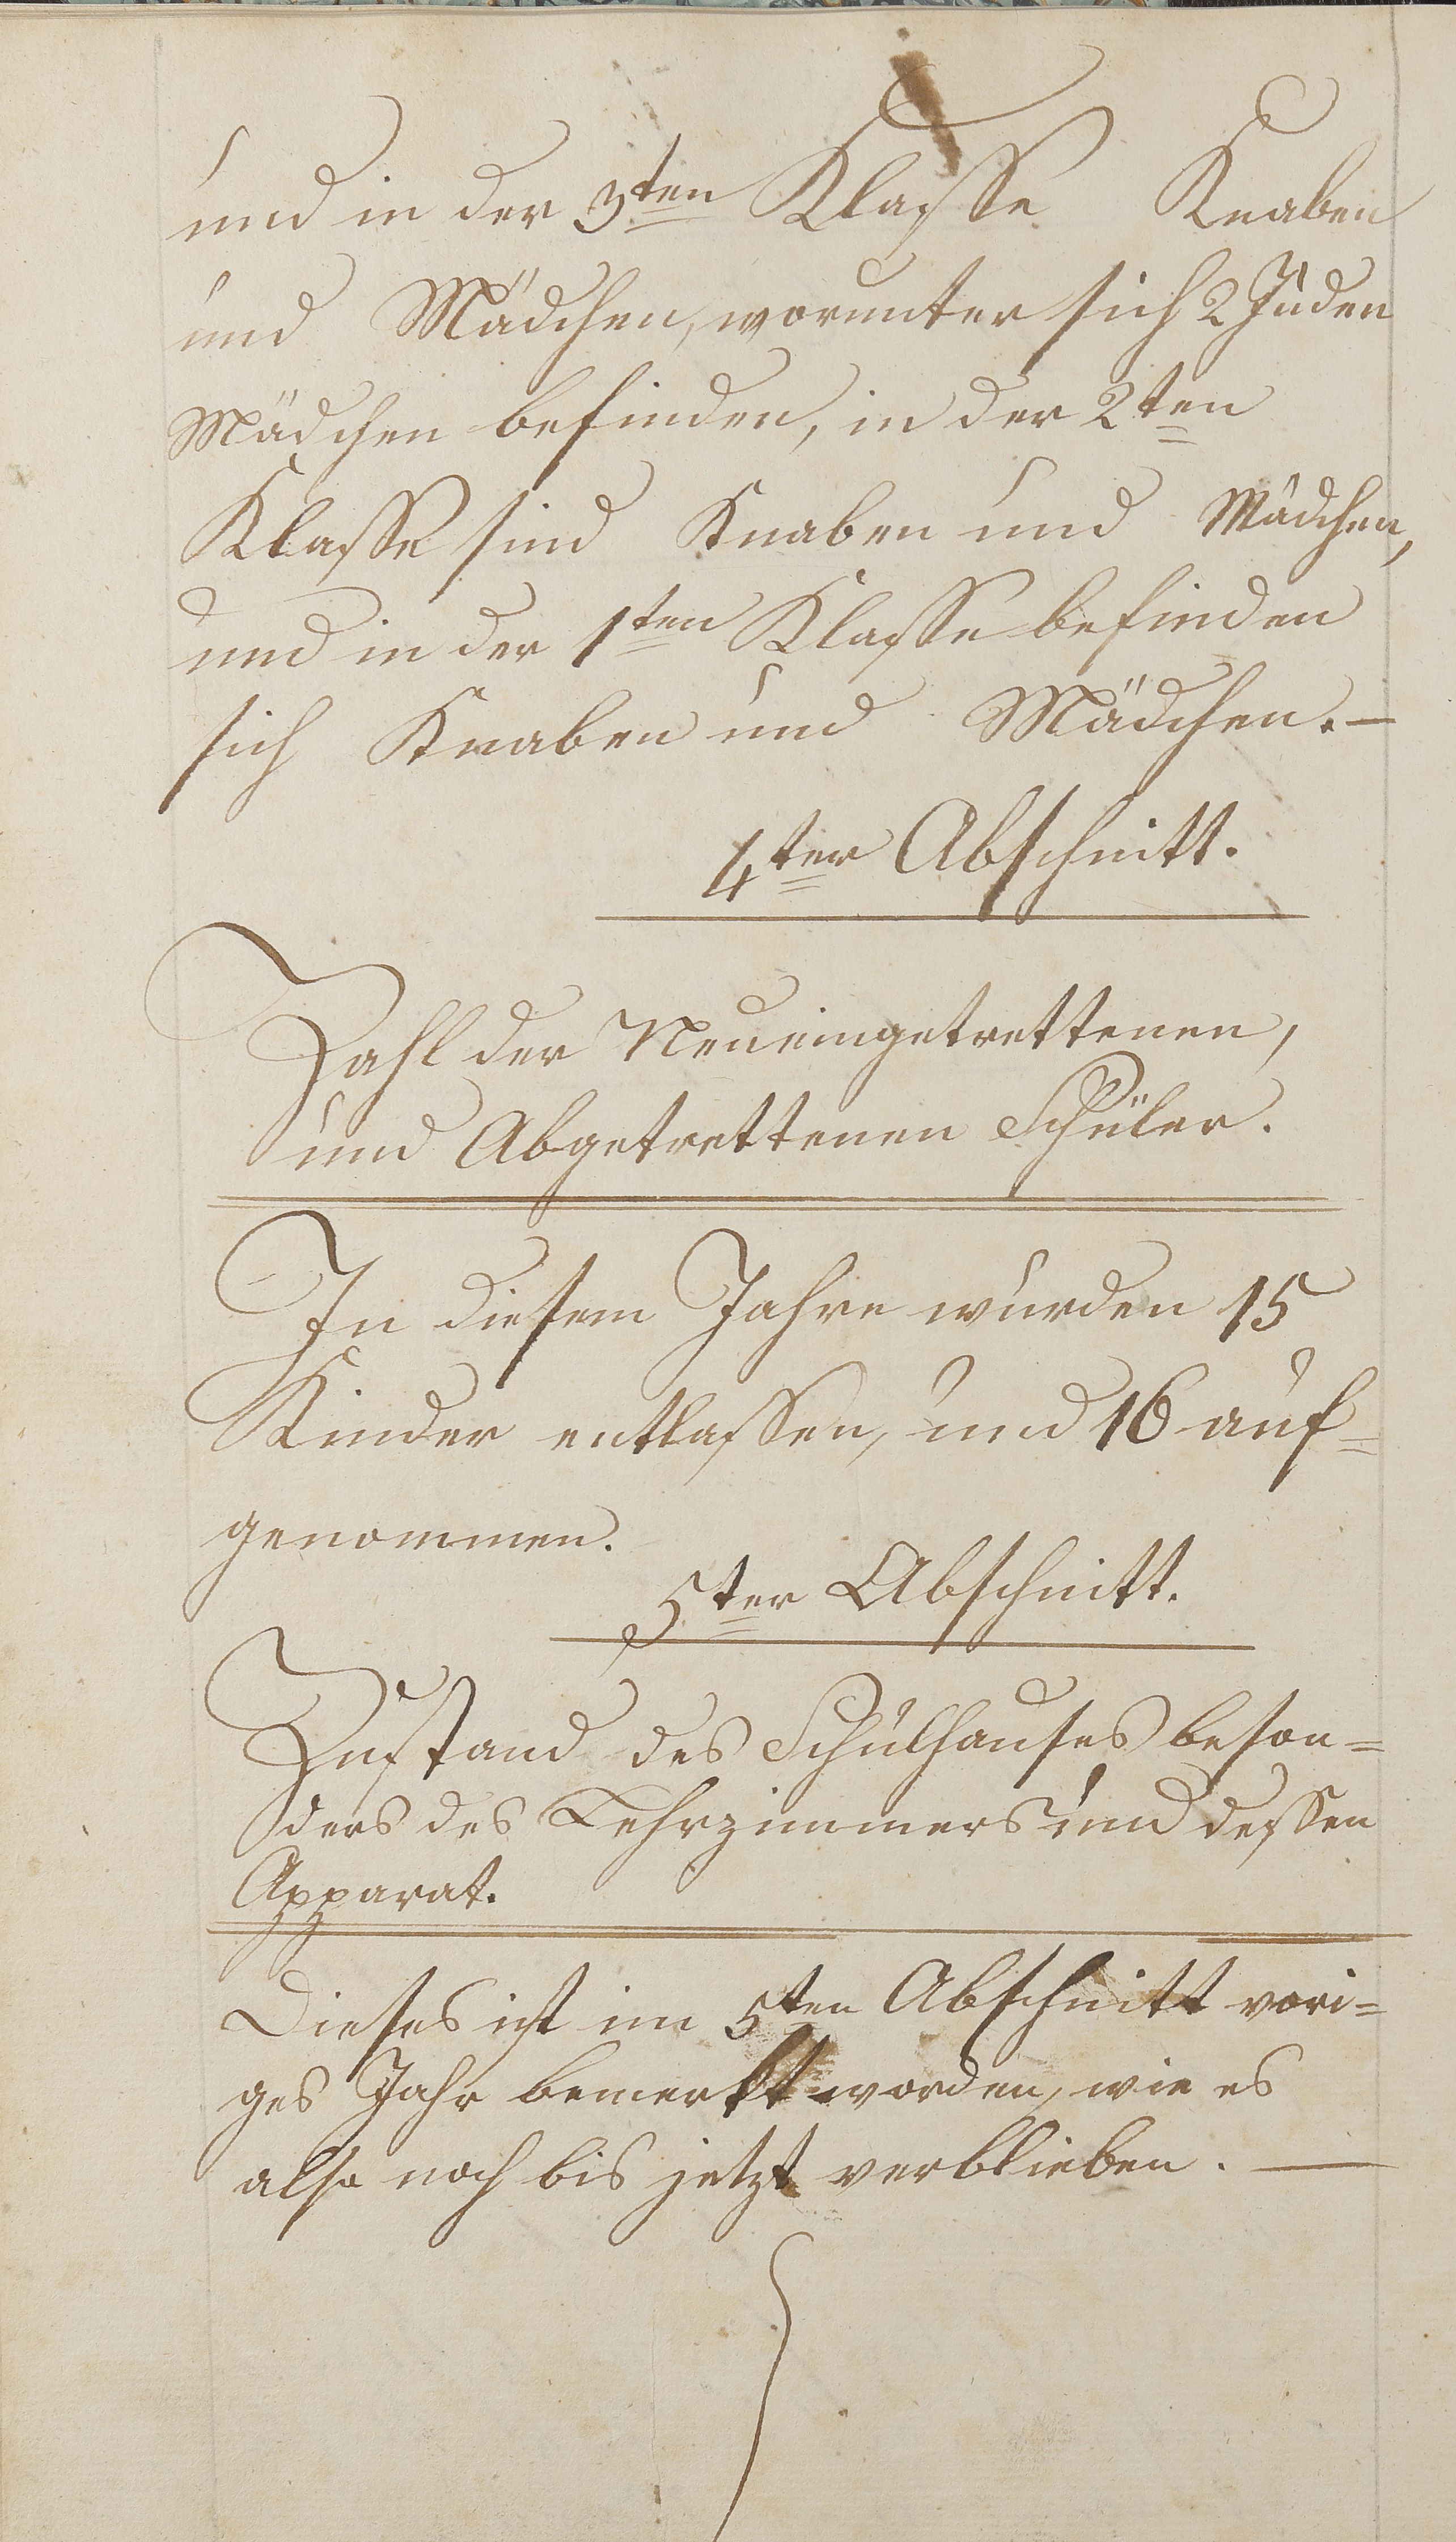 und in der 3ten Klasse Knaben
und Mädchen, worunter sich 2 Juden
Mädchen befinden, in der 2ten
Klasse sind Knaben und Mädchen,
und in der 1ten Klasse befinden
sich Knaben und Mädchen. —
4ter Abschnitt.
Zahl der Neueingetrettenen,
und Abgetrettenen Schüler.
In diesem Jahre wurden 15
Kinder entlassen, und 16 auf=
genommen.
5ter Abschnitt.
Zustand des Schulhauses beson=
ders des Lehrzimmers und dessen
Apparat.
Dieses ist im 5ten Abschnitt vori=
ges Jahr bemerkt worden, wie es
also noch bis jetzt verblieben. —